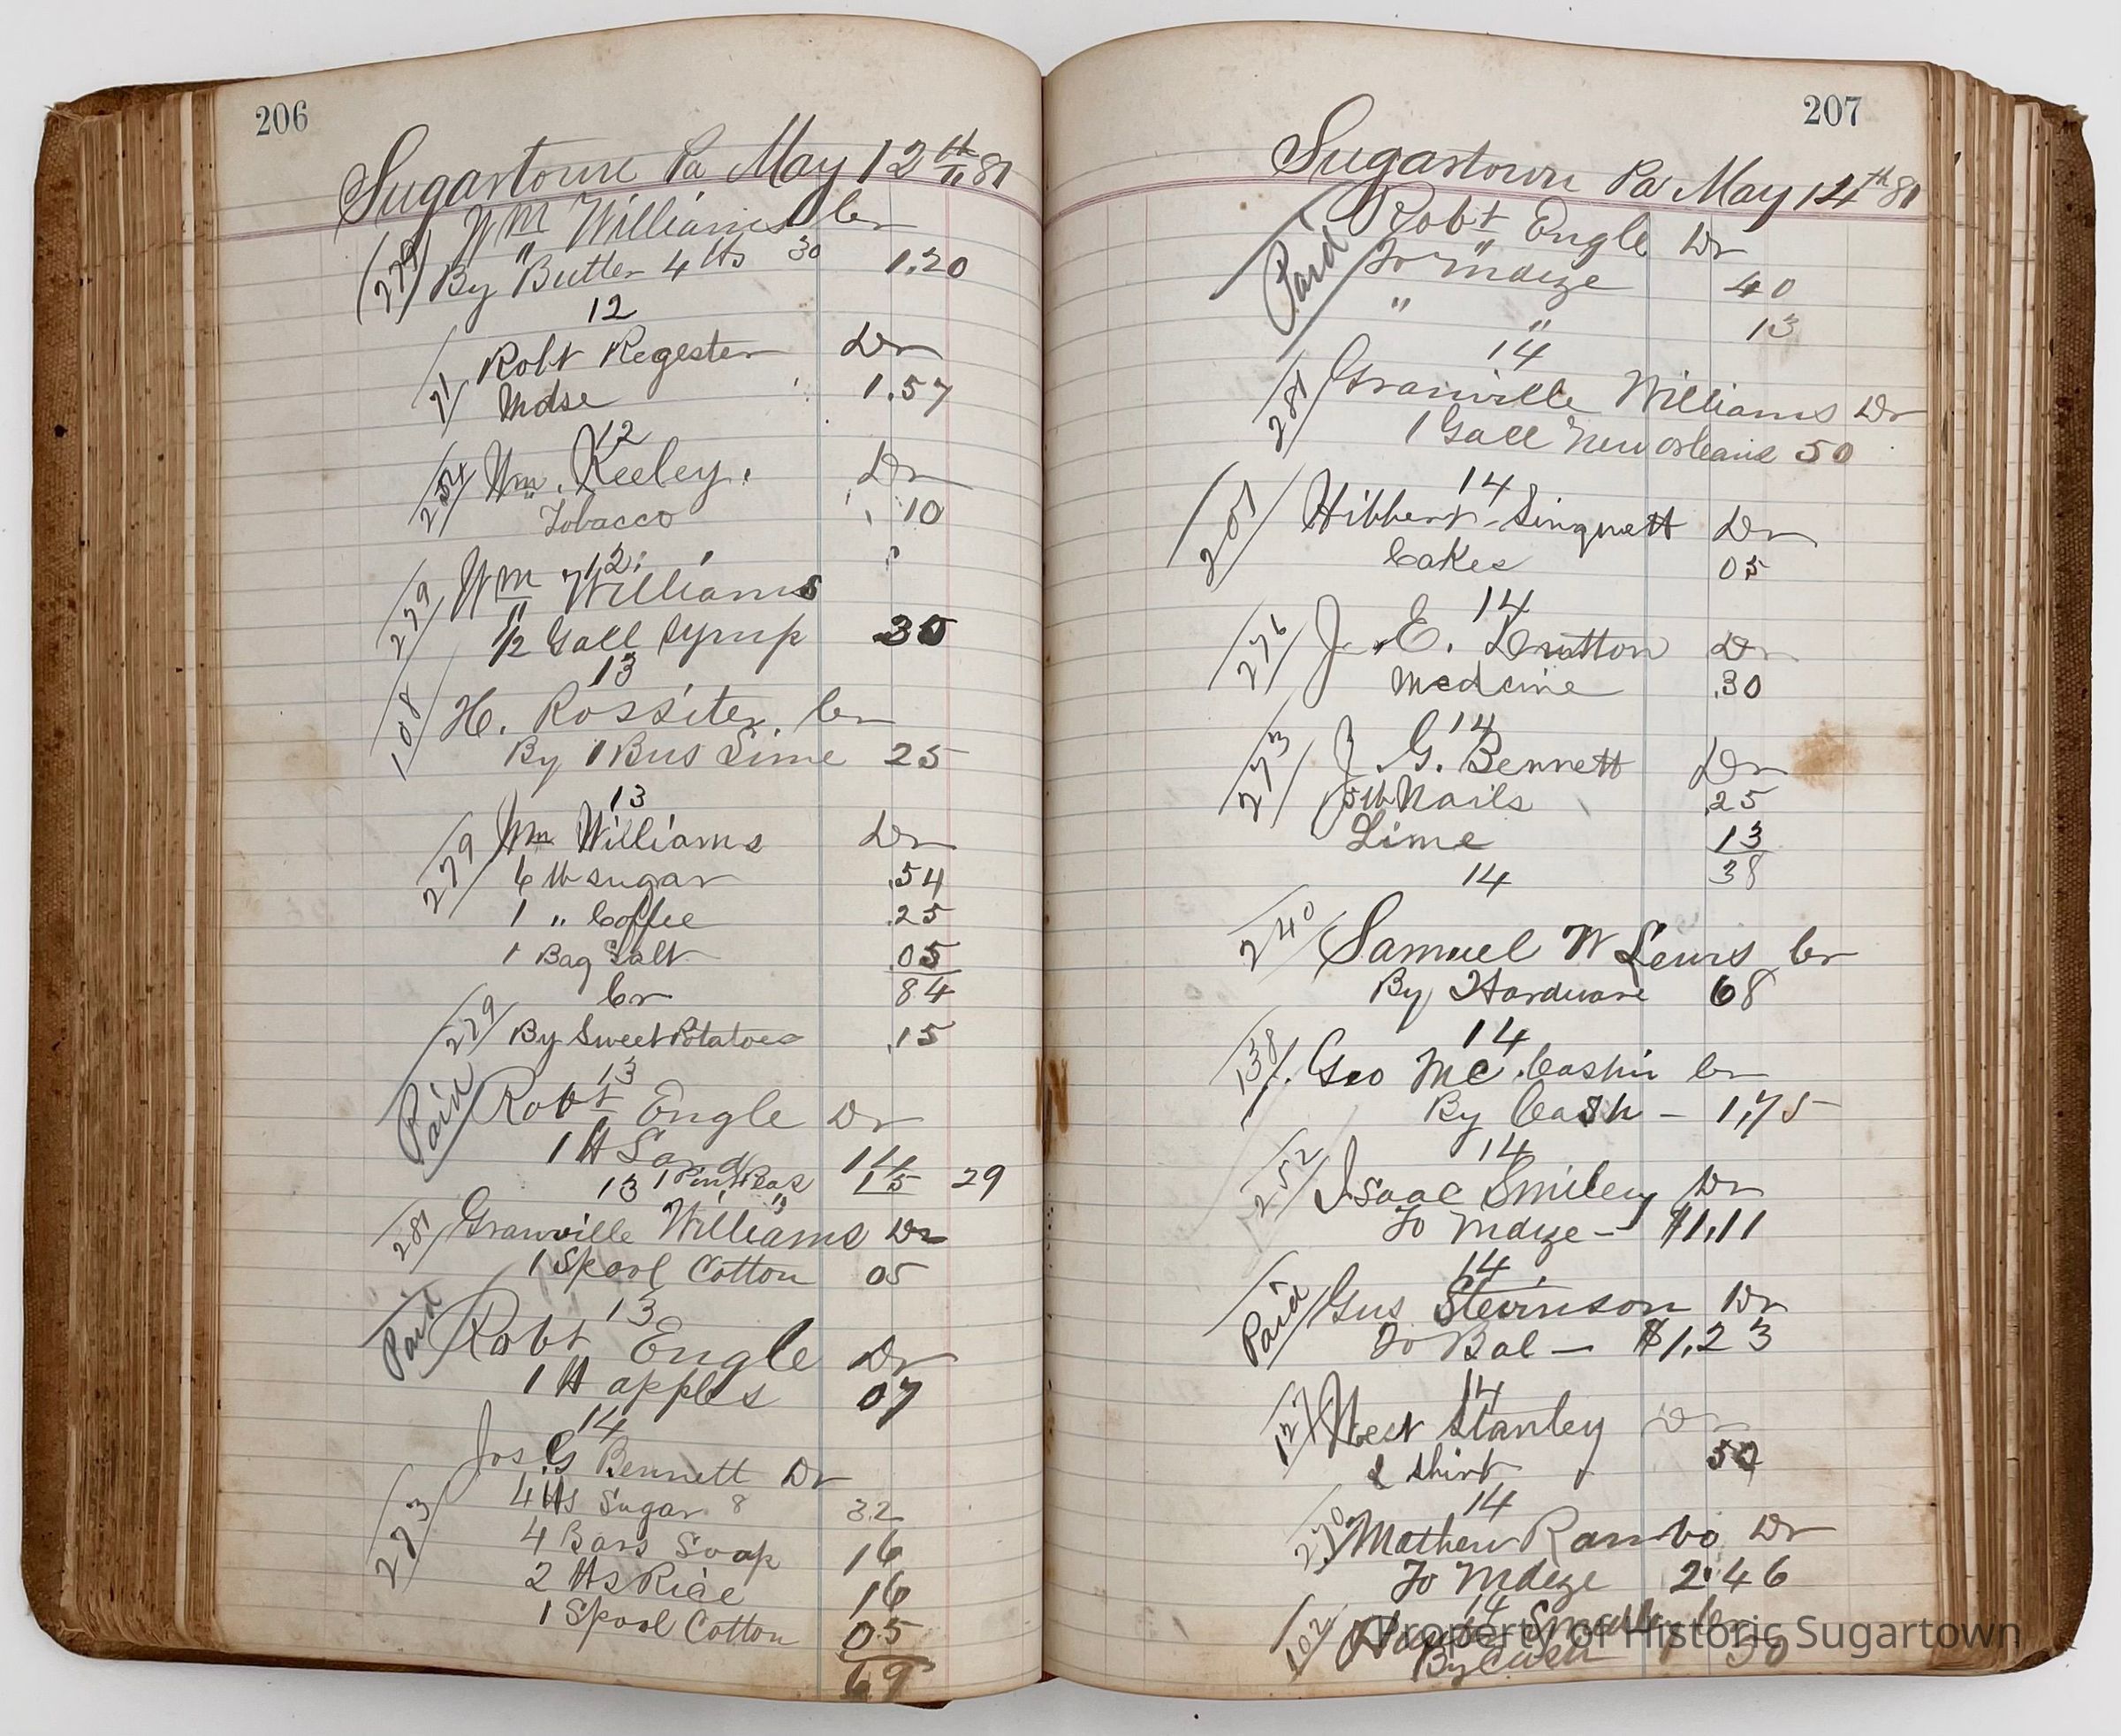 206
Sugartown Pa May 12th " 81
Wm Williams Cr
279 By Butter 4 lbs 30 1.20
12
71 Robt Regester Dr
Mdse 1.57
12
254 Wm. Keeley. Dr
Tobacco 10
12
279 Wm Williams
1/2 Gall Syrup 30
13
108 H. Rossiter Cr
By 1 Bus Lime 25
13
279 Wm Williams Dr
6 lb sugar .54
1 " Coffee .25
1 Bag Salt .05
Cr 84
279 By Sweet Potatoes .15
13
Paid Robt Engle Dr
1 lb Sand 14
13 1 Pint Peas 15 29
281 Granville Williams Dr
1 Spool Cotton 05
13
Paid Robt Engle Dr
1 lb apples 07
14
Jos G Bennett Dr
273 4 lbs Sugar 8 32
4 Bars Soap 16
2 lbs Rice 16
1 Spool Cotton 05
69
207
Sugartown Pa May 14th 81
Paid Robt Engle Dr
To Mdze 40
" " 13
14
281 Granville Williams Dr
1 Gall New Orleans 50
14
201 Hibbert Singuett Dr
Cakes 05
14
276 J. E. Dutton Dr
Medcine .30
14
273 J G. Bennett Dr
5 lb Nails .25
Lime 13
14 38
240 Samuel W Lewis Cr
By Hardware 68
14
138 Geo Mc Cashin Cr
By Cash - 1,75
14
252 Isaac Smiley Dr
To Mdze - $1,11
14
Paid Gus Stevinson Dr
To Bal - $1.23
14
127 West Stanley Dr
shirt 50
14
270 Mathew Rambo Dr
To Mdze 2.46
14
102 Cr
By 50
Property of Historic Sugartown